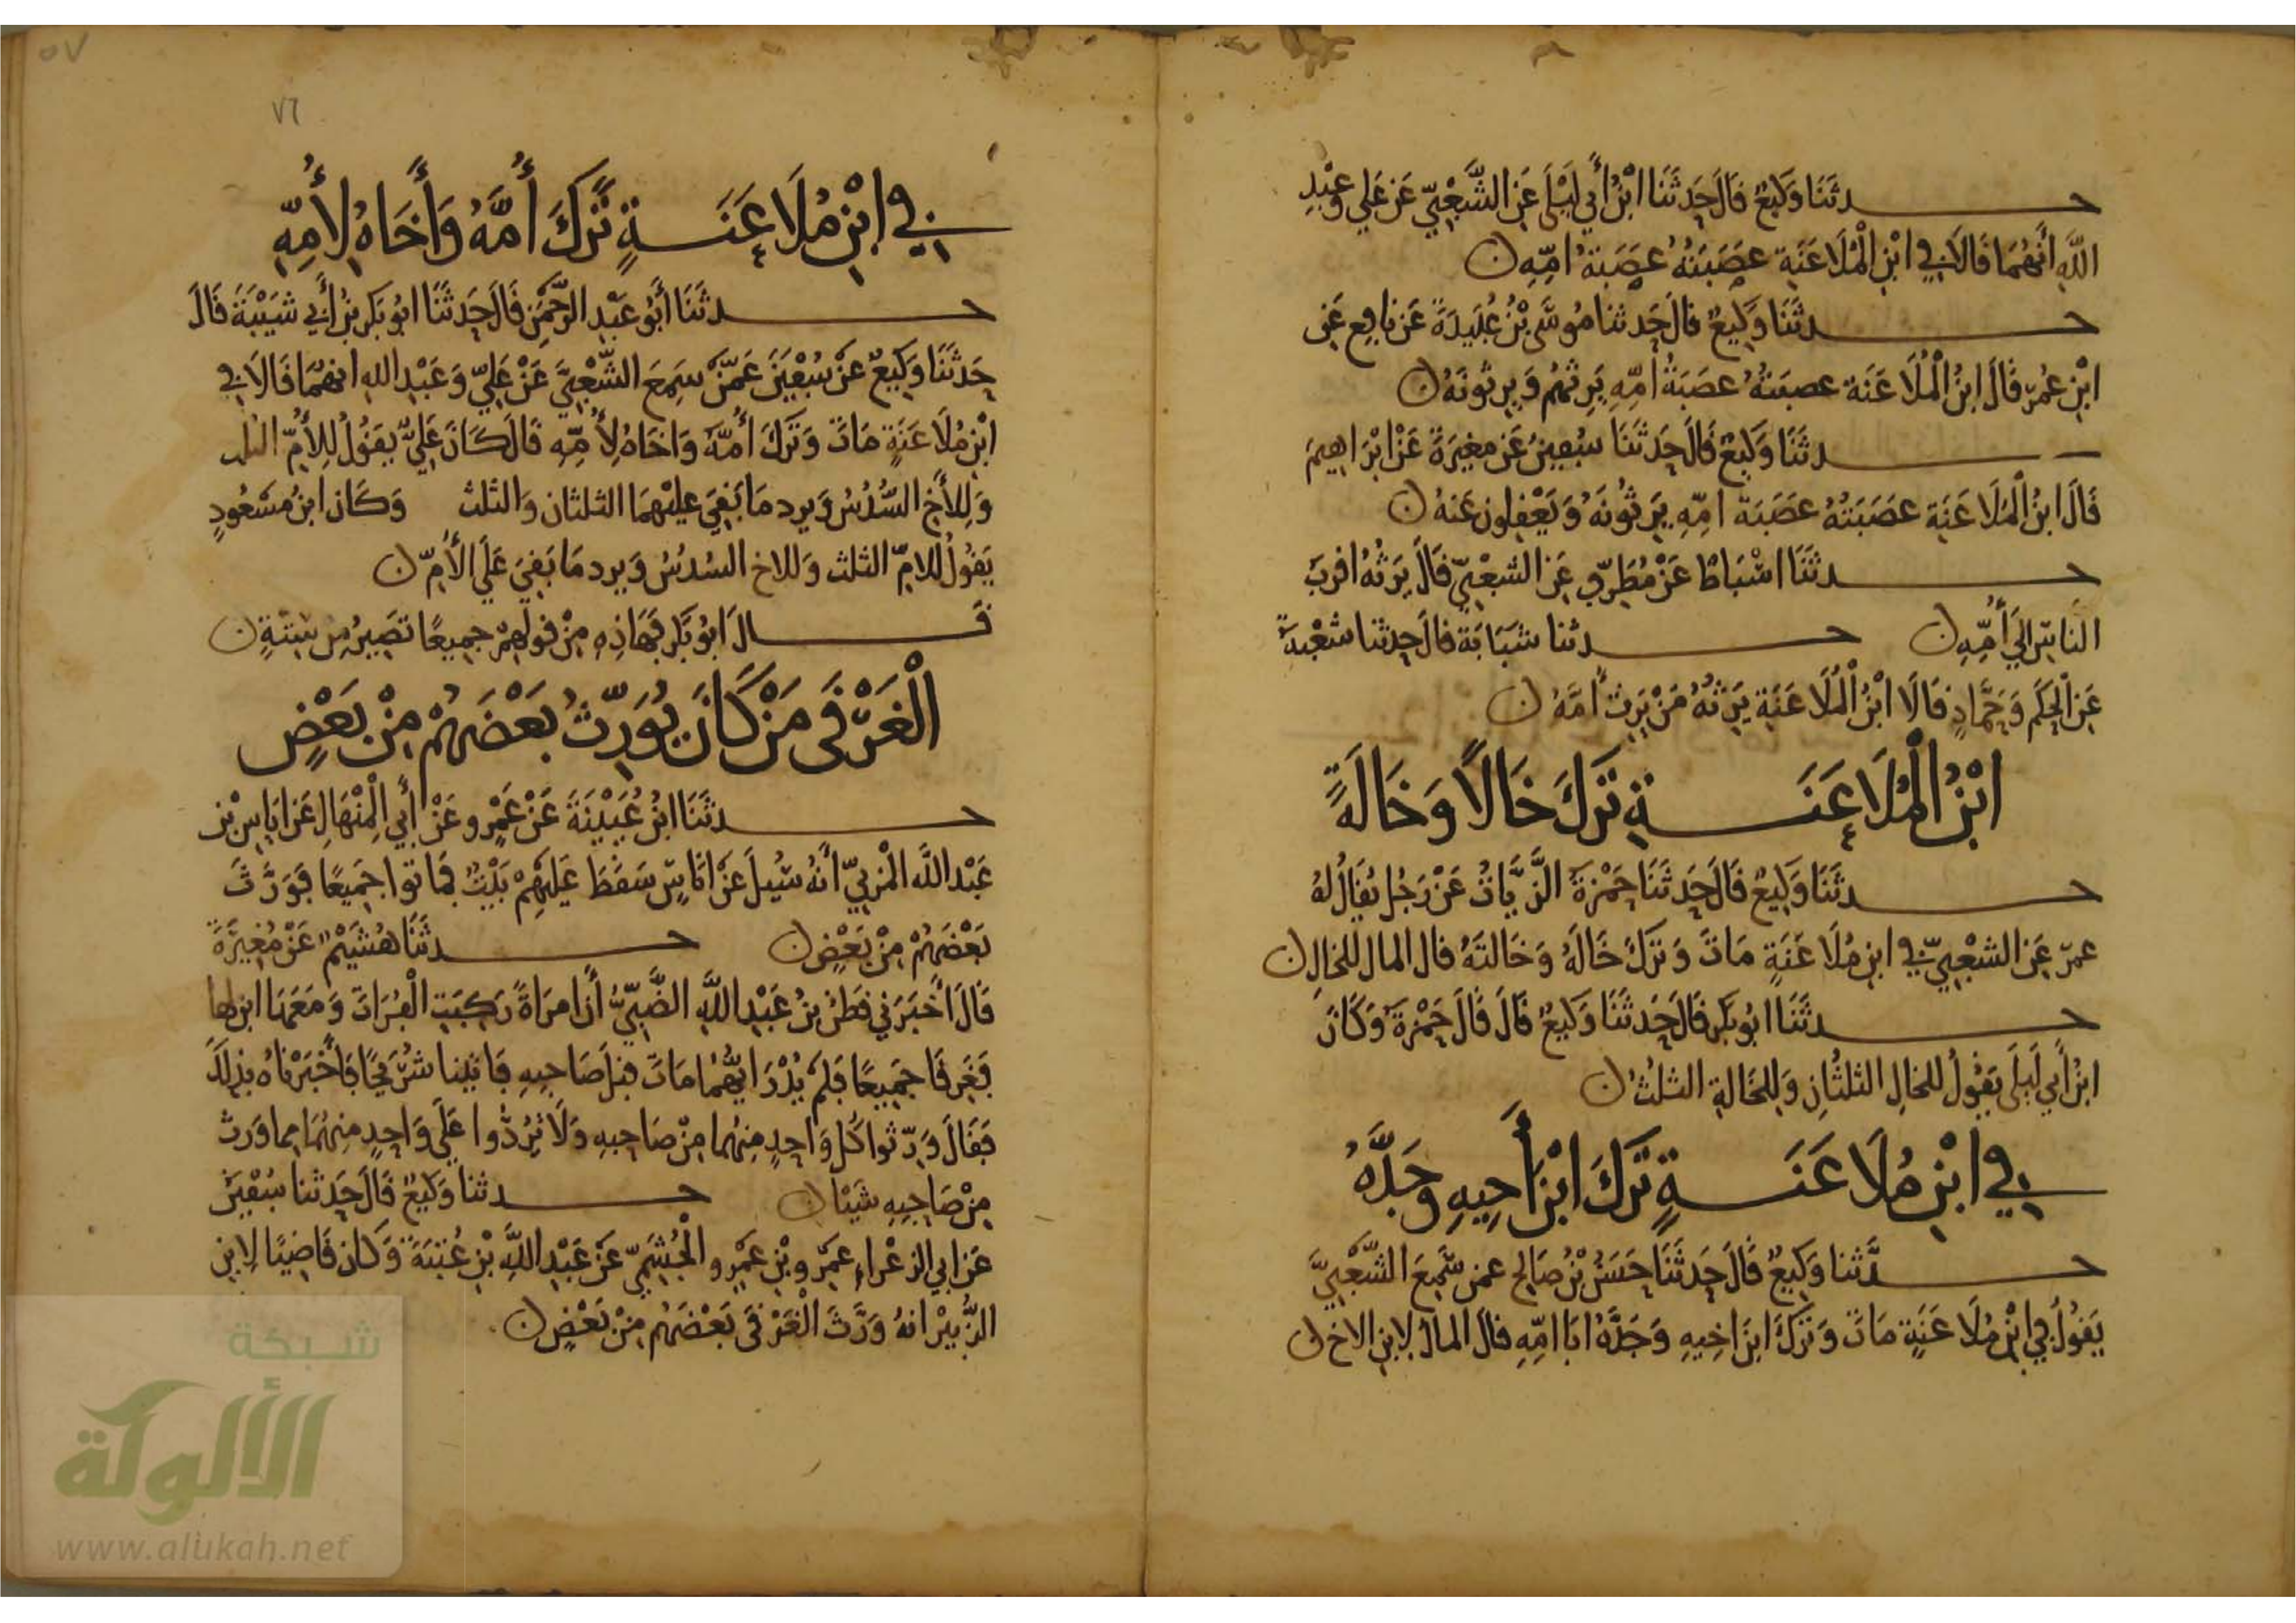 حدثنا وكيع قال حدثنا ابن أبي ليلى عن الشعبي عن علي وعبد
الله أنهما قالا في ابن الملاعنة عصبته عصبة أمه
حدثنا وكيع قال حدثنا موسى بن عبيدة عن نافع عن
ابن عمر قال ابن الملاعنة عصبته عصبة أمه يرثهم ويرثونه
حدثنا وكيع قال حدثنا سفين عن مغيرة عن ابراهيم
قال ابن الملاعنة عصبته عصبة امه يرثونه ويعقلون عنه
حدثنا اسباط عن مطرف عن الشعبي قال يرثه اقرب
الناس إلى أمه حدثنا شبابة قال حدثنا شعبة
عن الحكم وحماد قالا ابن الملاعنة يرثه من يرث أمه
ابن الملاعنة ترك خالا وخالة
حدثنا وكيع قال حدثنا حمزة الزيات عن رجل يقال له
عمر عن الشعبي في ابن ملاعنة مات وترك خاله وخالته قال المال للخال
حدثنا ابو بكر قال حدثنا وكيع قال قال حمزة وكان
ابن أبي ليلى يقول للخال الثلثان وللخالة الثلث
في ابن ملاعنة ترك ابن أخيه وجده
حدثنا وكيع قال حدثنا حسن بن صالح عمن سمع الشعبي
يقول في ابن ملاعنة مات وترك ابن اخيه وجده ابا امه قال المال لابن الاخ
٥٧
٧٦
في ابن ملاعنة ترك أمه وأخاه لأمه
حدثنا أبو عبد الرحمن قال حدثنا ابو بكر بن أبي شيبة قال
حدثنا وكيع عن سفين عمن سمع الشعبي عن علي وعبد الله انهما قالا في
ابن ملاعنة مات وترك أمه واخاه لأمه قال كان علي يقول للأم الثلث
وللأخ السدس ويرد ما بقي عليهما الثلثان والثلث وكان ابن مسعود
يقول للام الثلث وللاخ السدس ويرد ما بقي على الأم
قال ابو بكر فهاذه من قولهم جميعا تصير من ستة
الغرقى من كان يورث بعضهم من بعض
حدثنا ابن عيينة عن عمرو عن أبي المنهال عن اياس بن
عبد الله المزني أنه سئل عن اناس سقط عليهم بيت فماتوا جميعا فورث
بعضهم من بعض حدثنا هشيم عن مغيرة
قال أخبرني قطن بن عبد الله الضبي أن امراة ركبت الفرات ومعها ابن لها
فغرقا جميعا فلم يدر ايهما مات قبل صاحبه فاتينا شريحا فأخبرناه بذلك
فقال ورثوا كل واحد منهما من صاحبه ولا تردوا على واحد منهما مما ورث
من صاحبه شيئا حدثنا وكيع قال حدثنا سفين
عن ابي الزعراء عمرو بن عمرو الجشمي عن عبد الله بن عتبة وكان قاضيا لابن
الزبير انه ورث الغرقى بعضهم من بعض
شبكة
الألوكة
www.alukah.net